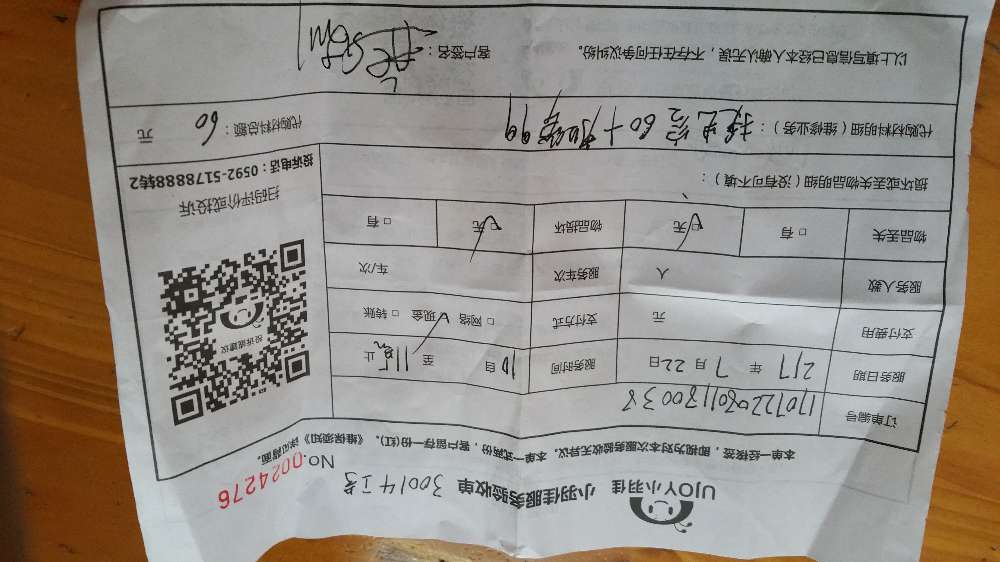 UJOY小羽佳 小羽佳服务验收单 30014工号
No. 0024276
本单一经接签，即视为对本次服务验收无异议。本单一式两份，客户留存一份(红)。《维保须知》详见背面。
订单编号
服务日期 217 年 7 月 22日 服务时间 10 自 至 止
支付费用 元 支付方式 □ 网络 现金 □ 转账
服务人数 人 服务车次 车/次
物品丢失 □ 有 □无 物品损坏 □无 □ 有
损坏或丢失物品明细（没有可不填）：
投诉或建议
扫码评价或投诉
投诉电话：0592-5178888转2
代购材料明细（维修业务）： 60十 99
代购材料总额： 60 元
以上填写信息已经本人确认无误，不存在任何争议纠纷。 客户签名：